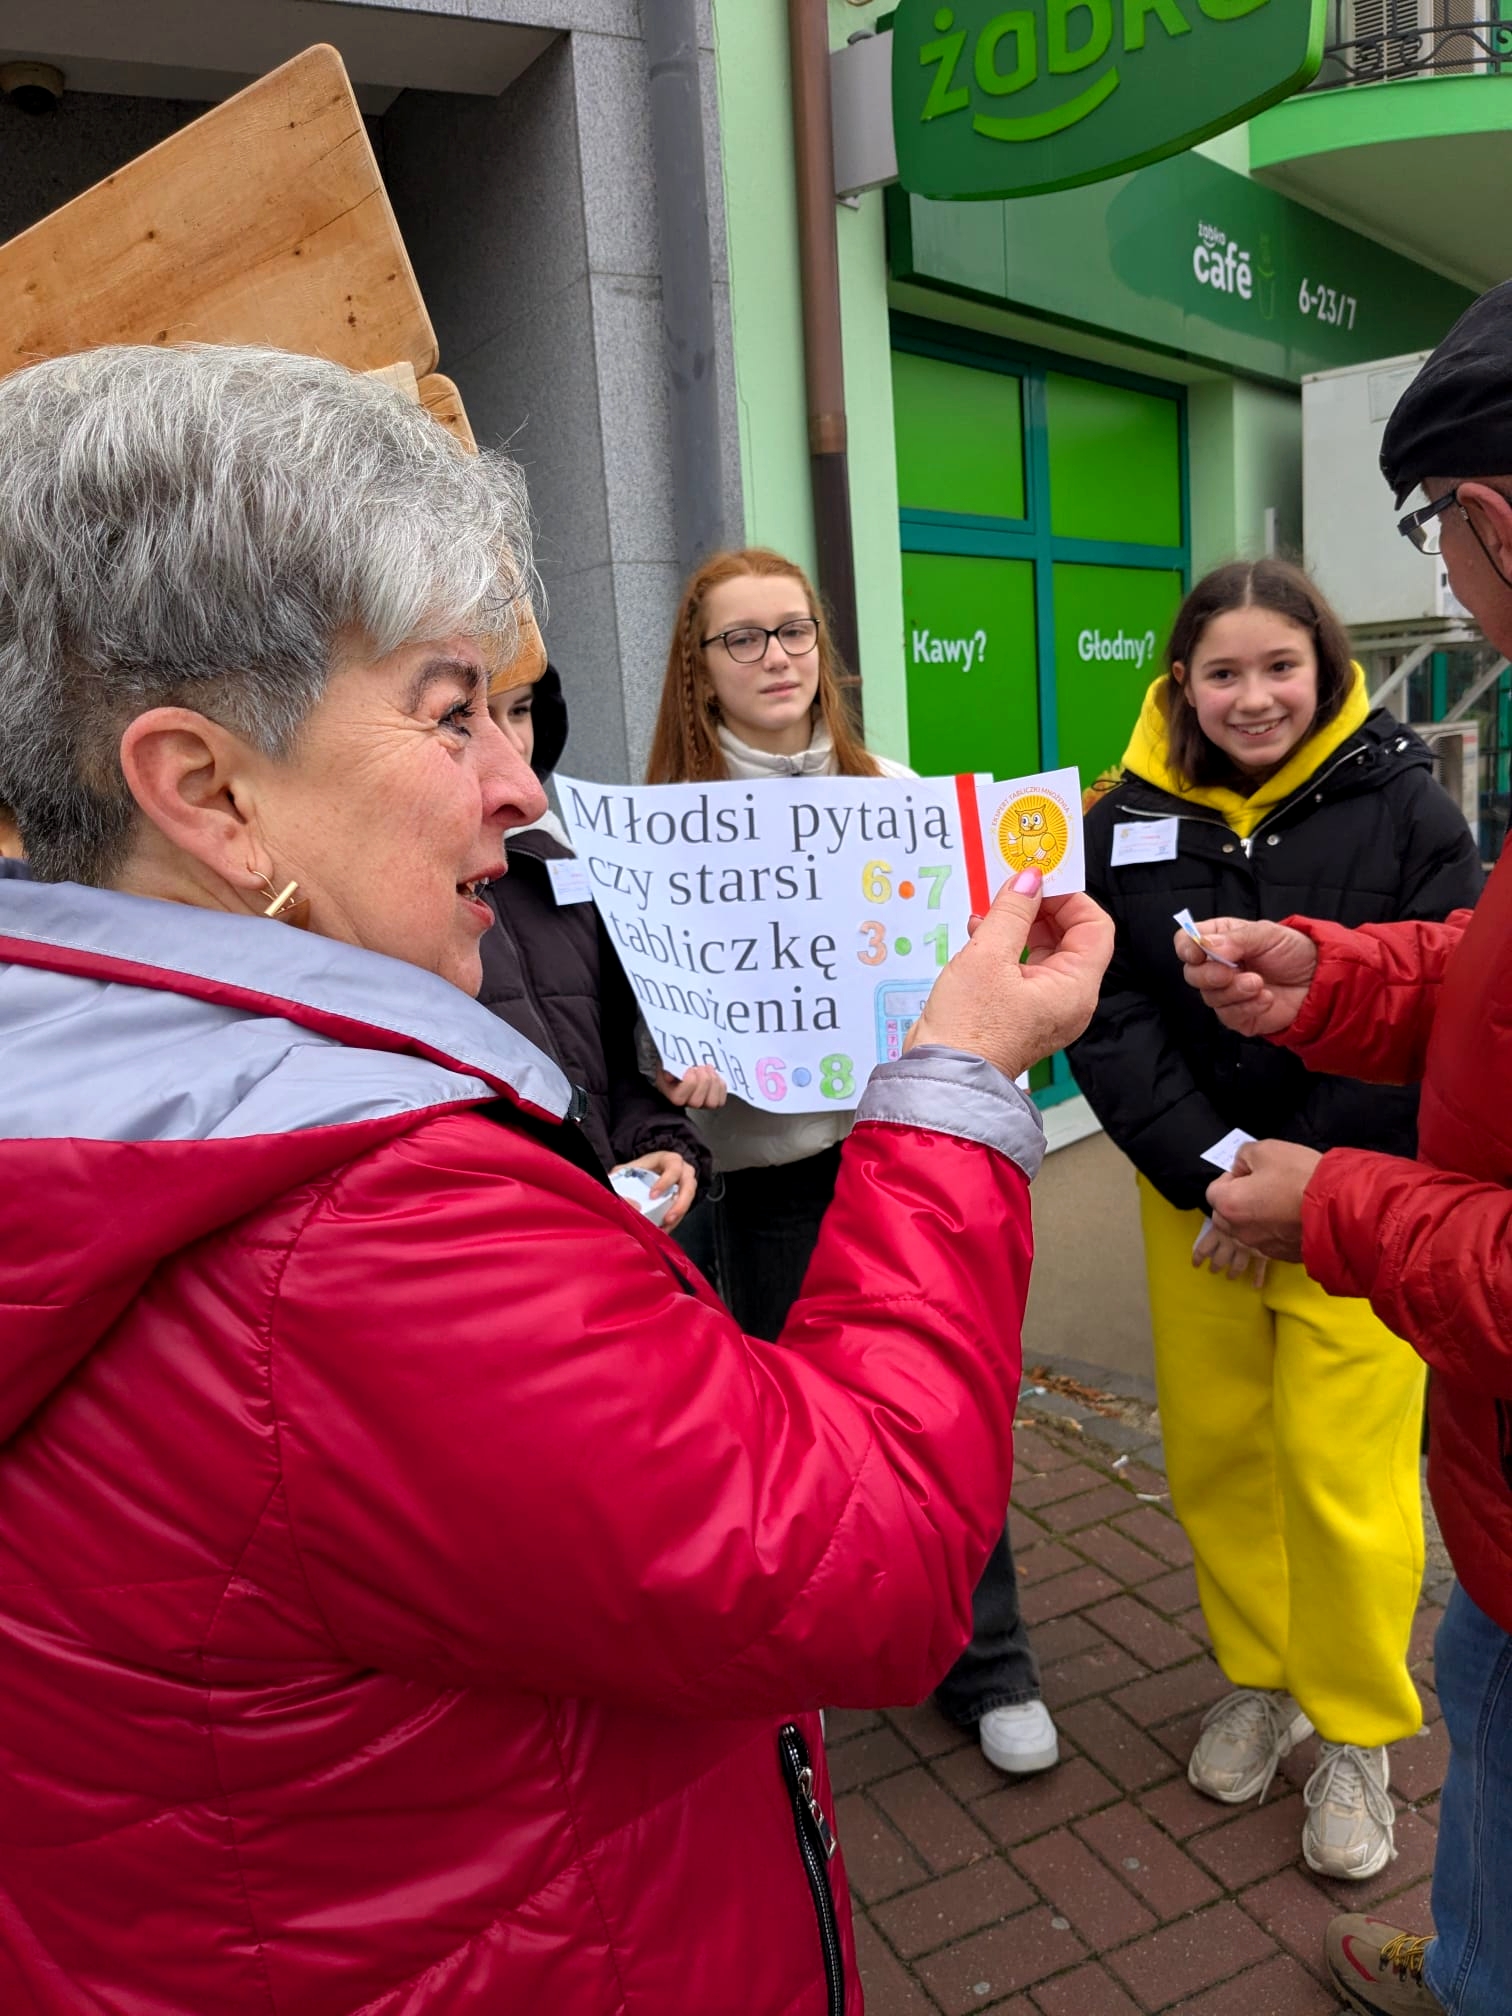 żabka
żabka
café
6-23/7
Kawy?
Głodny?
Młodsi pytają
czy starsi 6•7
tabliczkę 3•1
mnożenia
znają 6•8
EKSPERT TABLICZKI MNOŻENIA